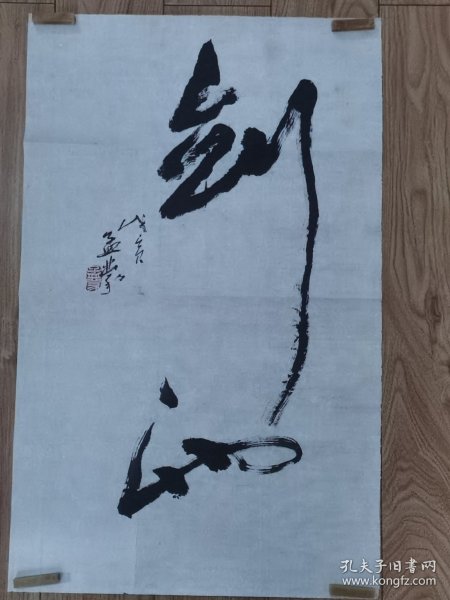 剑池
戊寅
孔夫子旧书网
www.kongfz.com